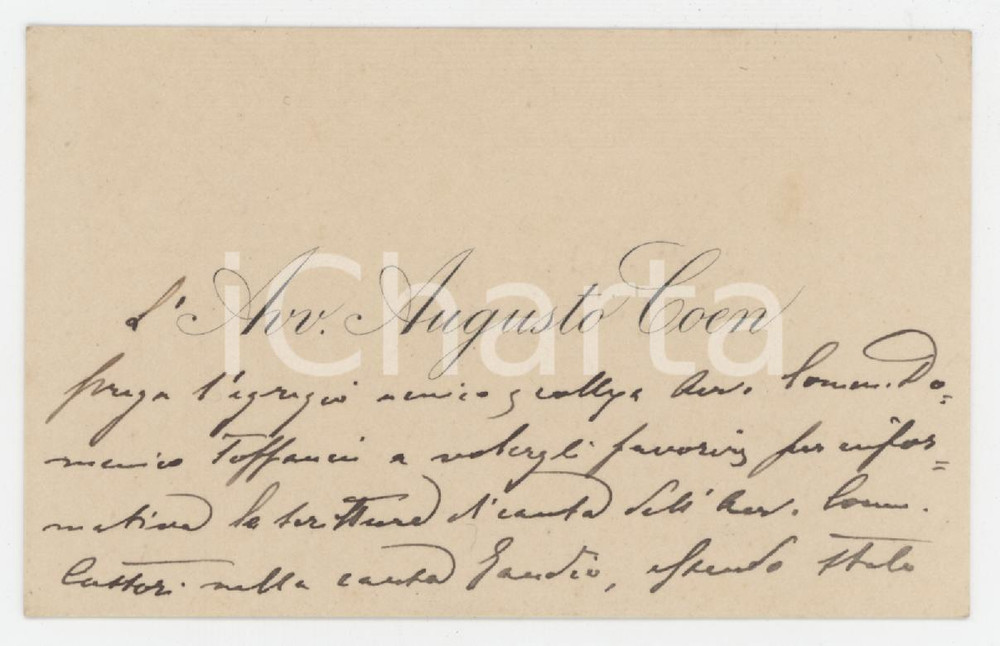 iCharta
L' Avv. Augusto Coen
prega l'egregio amico e collega Avv. Comm. Do=
menico Toffanin a volergli favorire per infor=
mativa le scritture di causa dell' Avv. Comm.
Castori nella causa Gaudio, essendo stato